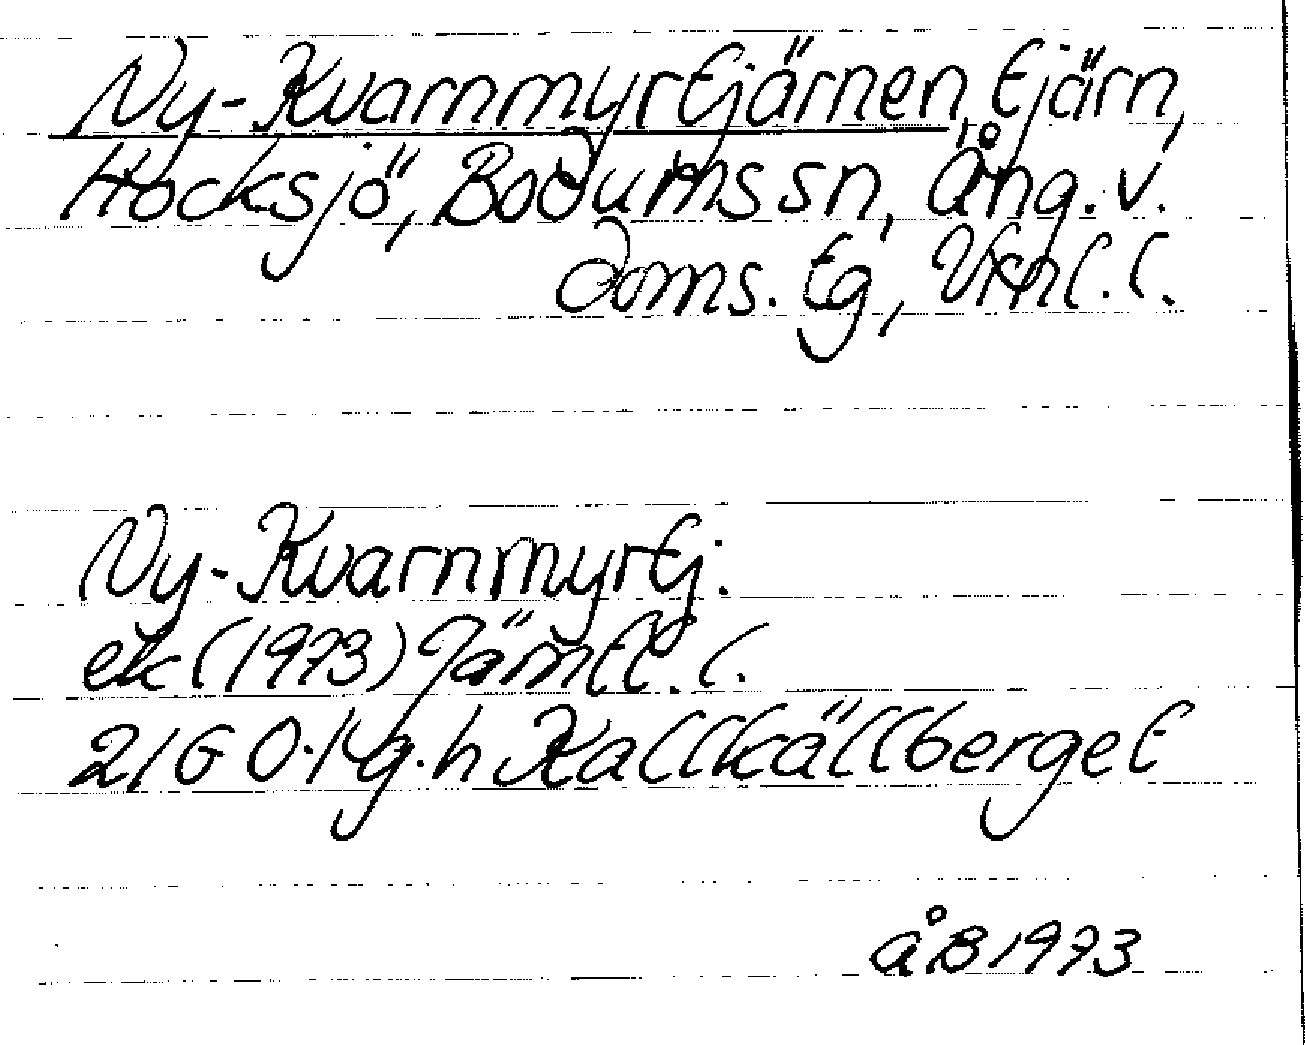 Ny-Kvarnmyrtjärnen, tjärn,
Hocksjö, Bodums sn, Ång. v.
doms. tg, Vnl. l.
Ny-Kvarnmyrtj.
ek (1973) Jämtl. l.
21G 0-1 g.h Kallkällberget
åB 1973